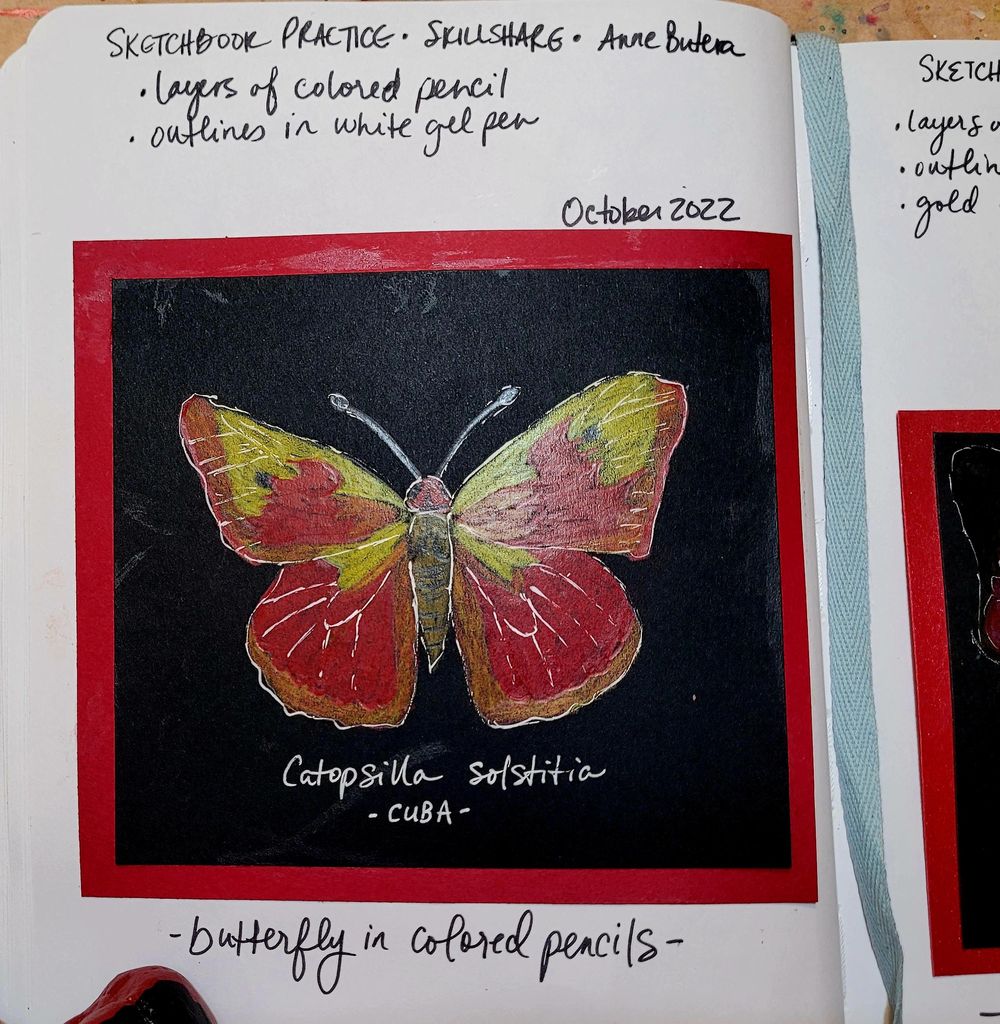 SKETCHBOOK PRACTICE • SKILLSHARE • Anne Butera
• layers of colored pencil
• outlines in white gel pen
October 2022
Catopsilla solstitia
- CUBA -
- butterfly in colored pencils -
SKETCH
• layers
• outlin
• gold